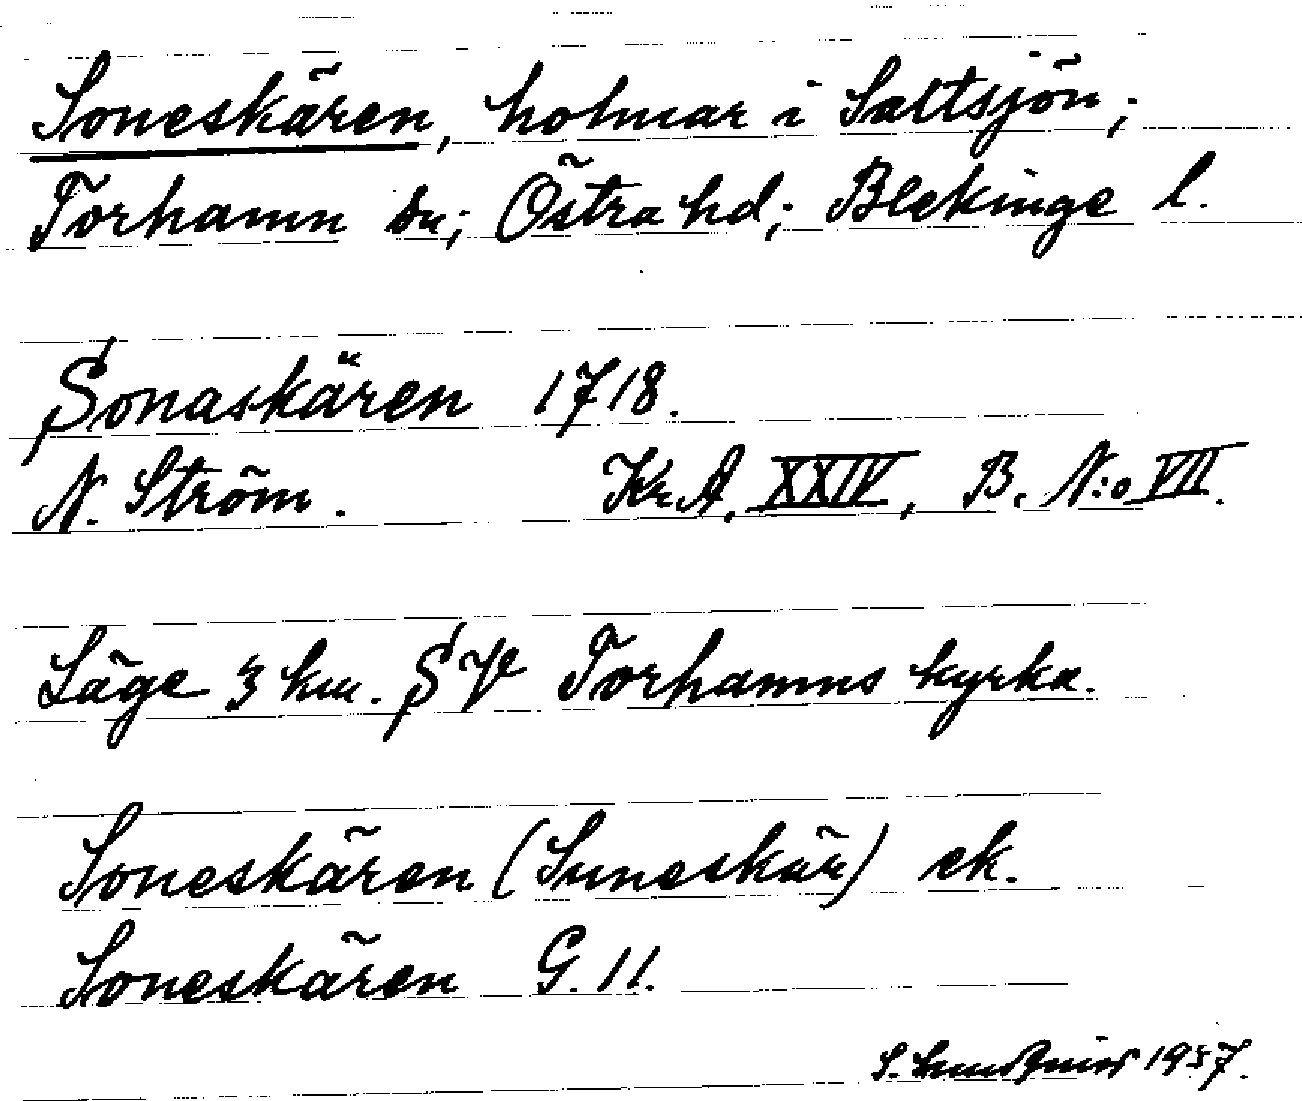 Soneskären, holmar i Saltsjön;
Torhamn sn; Östra hd; Blekinge l.
Sonaskären 1718.
N. Ström. Kr.A. XXIV, B. N:o VII.
Läge 3 km. SV Torhamns kyrka.
Soneskären (Suneskär) ek.
Soneskären G. 11.
S. 1957.